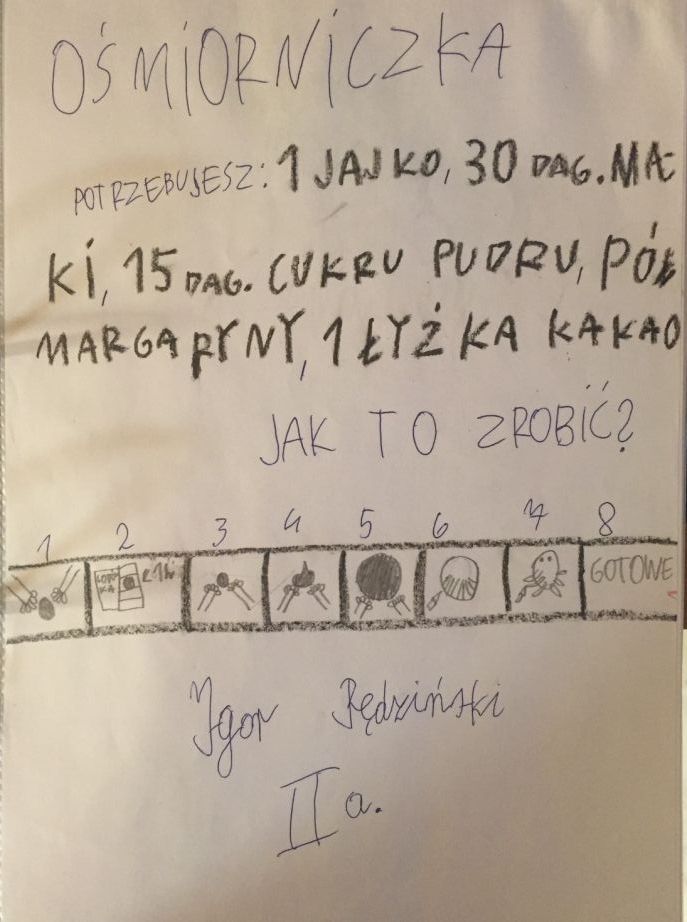 OŚMIORNICZKA
POTRZEBUJESZ: 1 JAJKO, 30 DAG. MĄ-
KI, 15 DAG. CUKRU PUDRU, PÓŁ
MARGARYNY, 1 ŁYŻKA KAKAO
JAK TO ZROBIĆ?
1 2 3 4 5 6 7 8
GOTOWE
Igor Pędziński
II a.